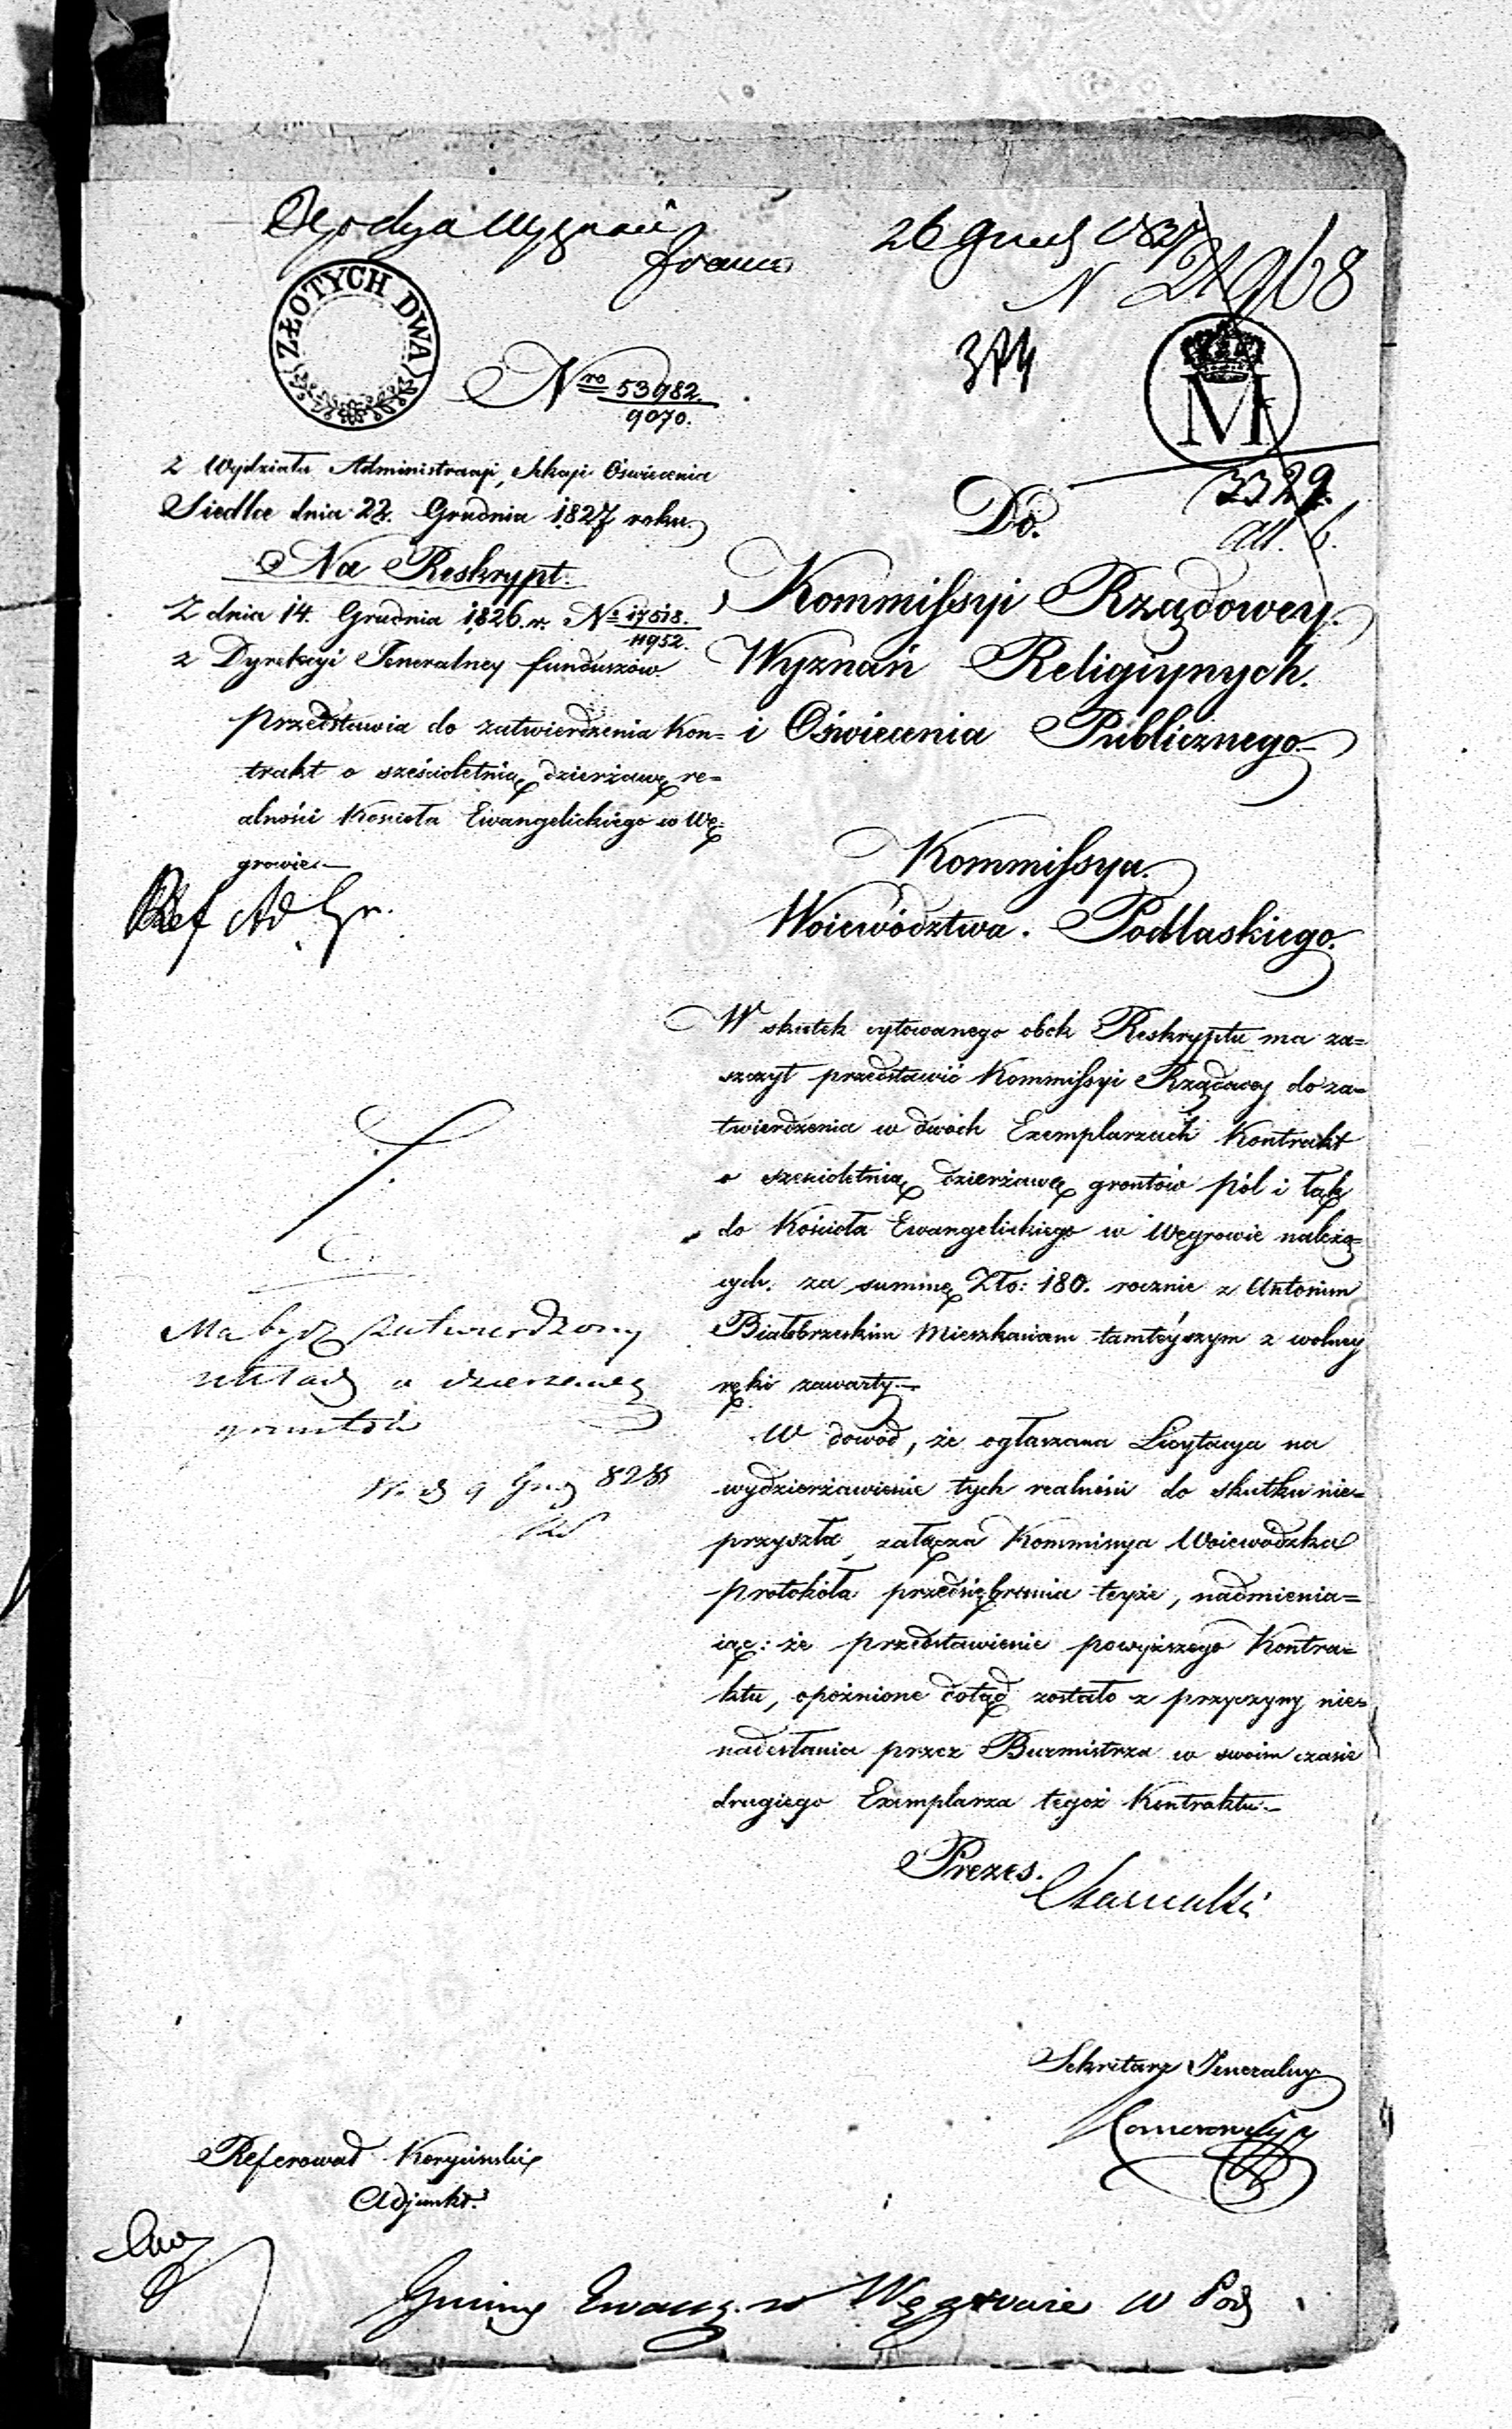 26 Grud 1827
N 21968
ZŁOTYCH DWA
374
M
Nro 53982.
9070.
3329.
all. 6.
Z Wydziału Administracyi, Sekcyi Oświecenia
Siedlce dnia 22. Grudnia 1827 roku.
Na Reskrypt.
Z dnia 14. Grudnia 1826. r. No 17518.
11952.
z Dyrekcyi Jeneralney funduszów
przedstawia do zatwierdzenia Kon=
trakt o sześcioletnią dzierżawę re=
alności Kościoła Ewangelickiego w Wę=
growie.—
Ref Ad
Do.
Kommissyi Rządowey.
Wyznań Religiynych.
i Oświecenia Publicznego
Kommissya.
Woiewództwa. Podlaskiego.
W skutek cytowanego obok Reskryptu ma za=
szczyt przedstawić Kommissyi Rządowey do za=
twierdzenia w dwóch Exemplarzach Kontrakt
o sześcioletnią dzierżawę grontów pól i łąk
do Kościoła Ewangelickiego w Węgrowie należą=
cych. za summę Zło: 180. rocznie z Antonim
Białobrzeskim Mieszkańcem tamtéyszym z wolney
ręki zawarty.—
W dowód, że ogłaszana Licytacya na
wydzierżawienie tych realności do skutku nie=
przyszła, załącza Kommissya Woiewódzka
protokóła przedsiębrania teyże, nadmienia=
iąc: że przedstawienie powyższego Kontra=
ktu, opóźnione dotąd zostało z przyczyny nie=
nadesłania przez Burmistrza w swoim czasie
drugiego Exemplarza tegoż Kontraktu.—
Ma bydz zatwierdzony
układ o dzierżawę
gruntów
9 828
Prezes.
Sekretarz Jeneralny
Referował
Adjunkt.
Gminy Ewang. w Węgrowie w Pod